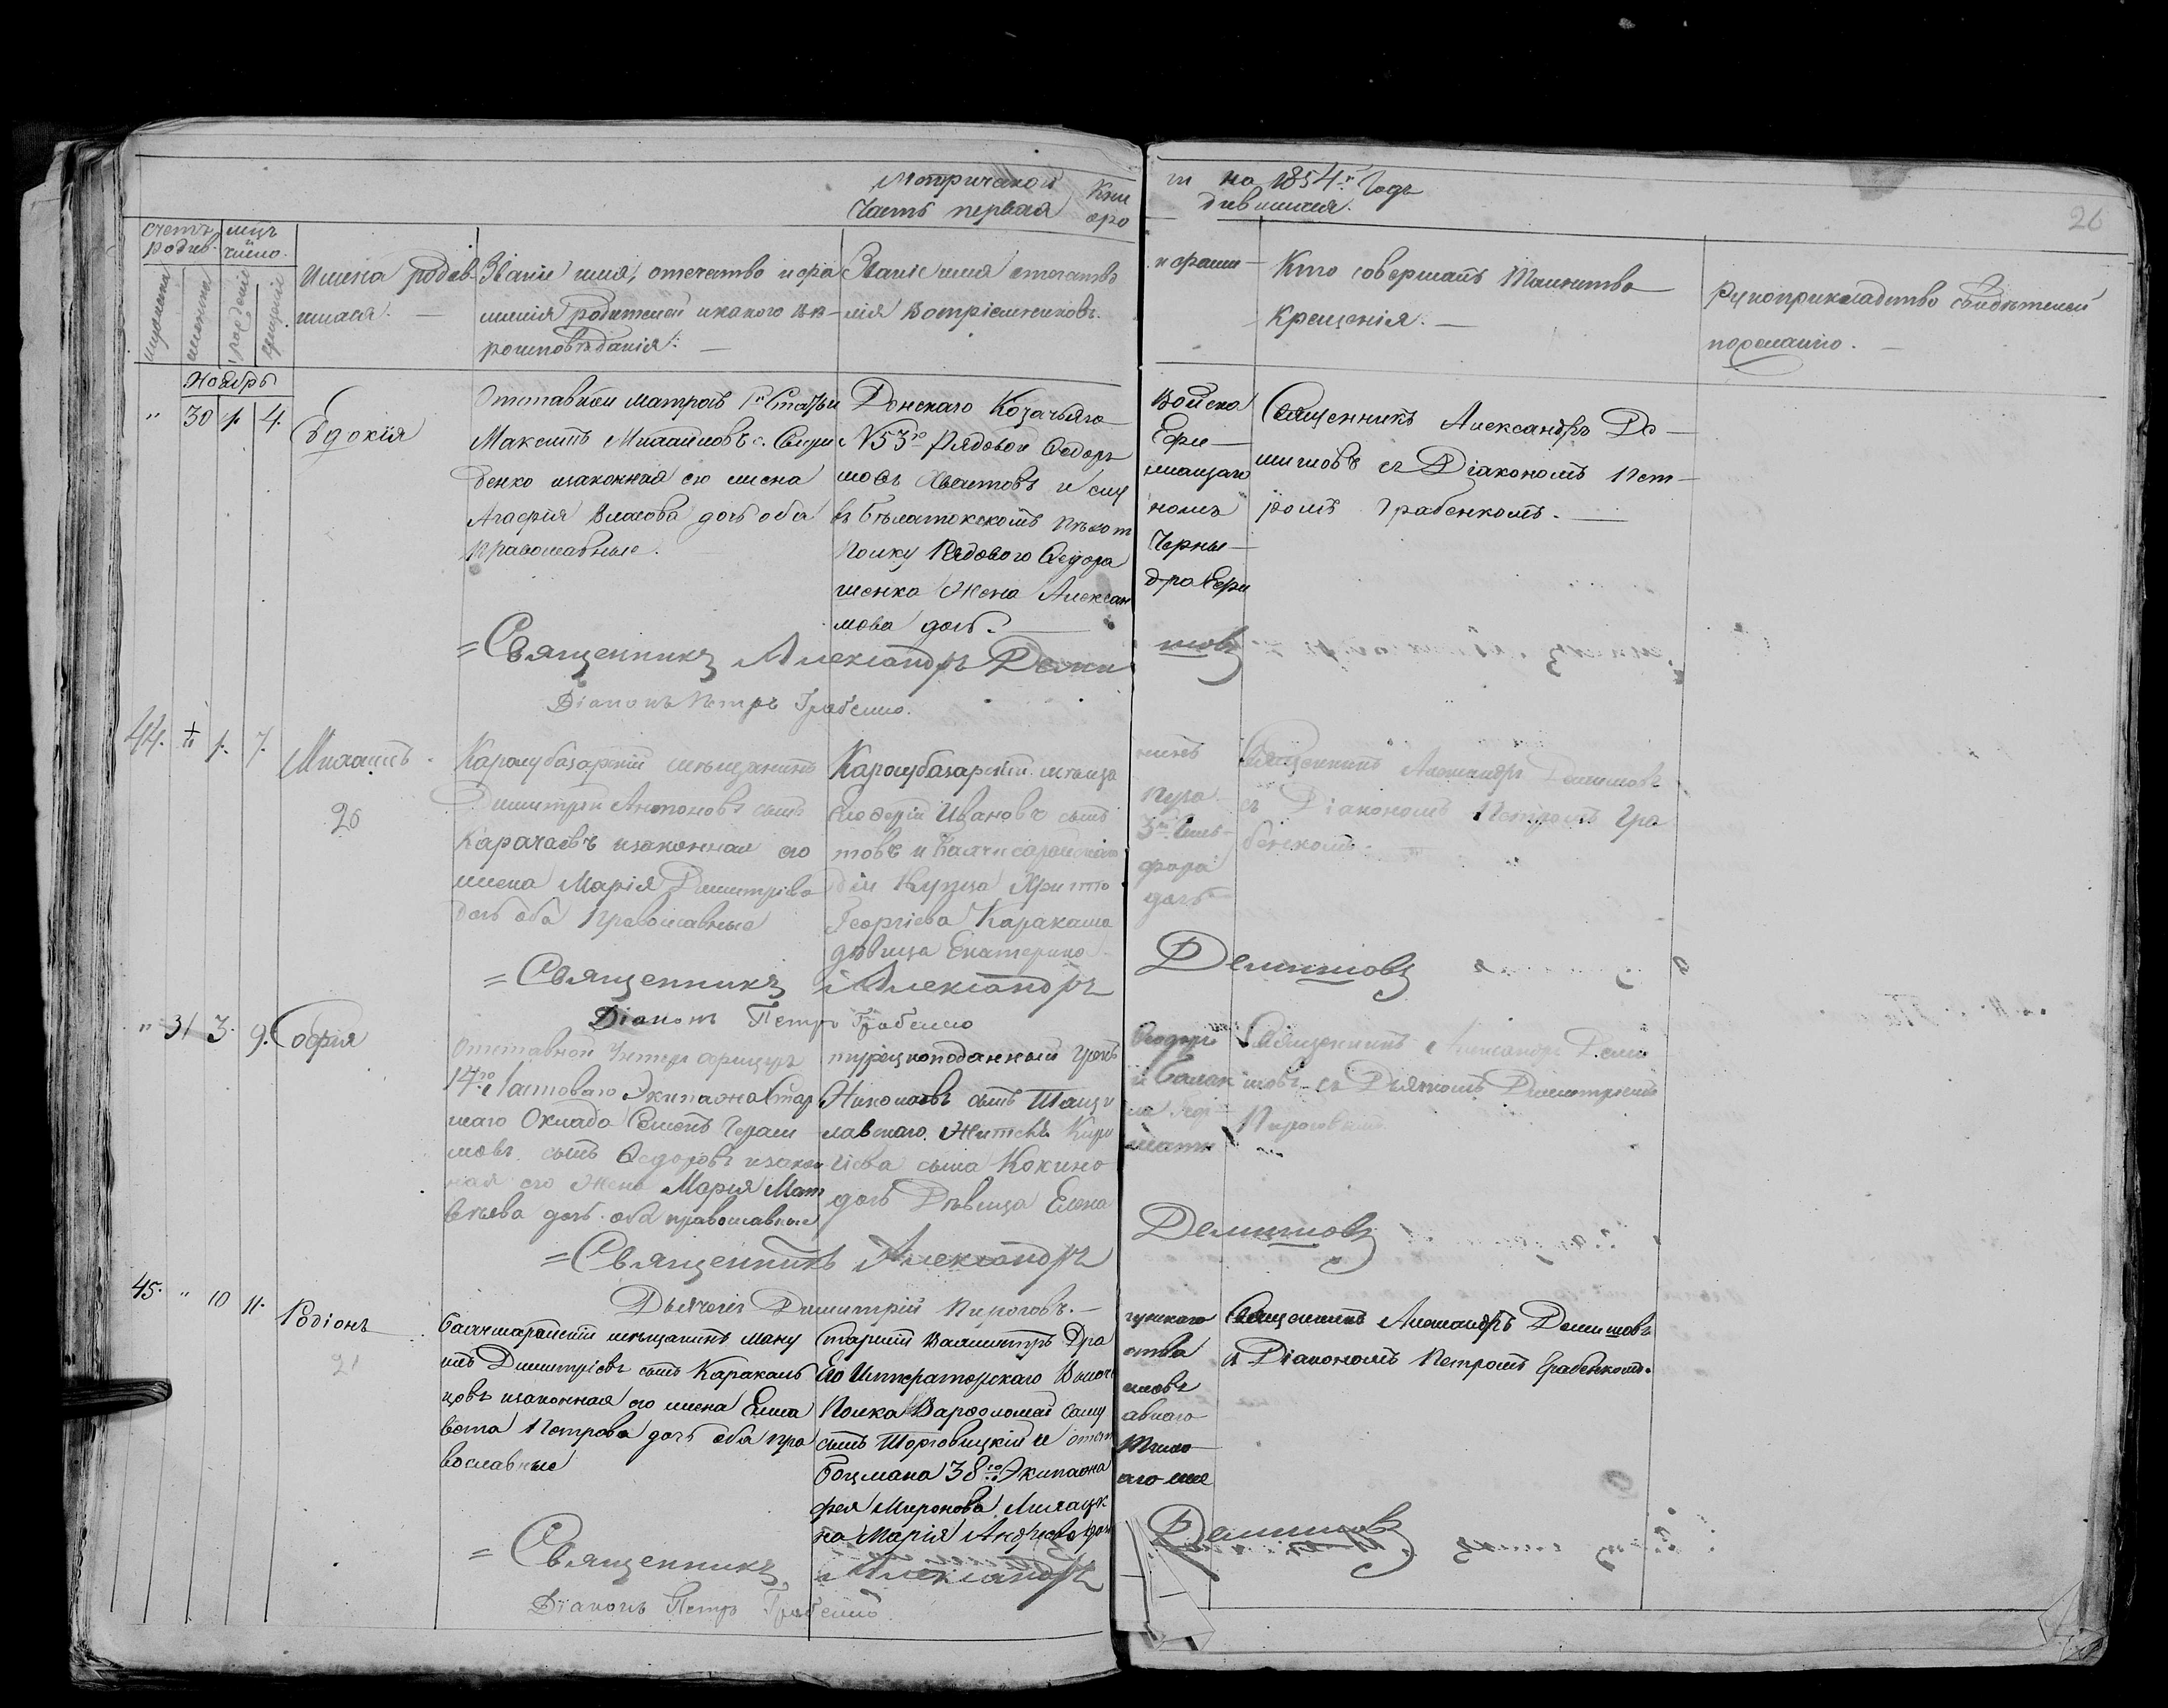 Метрической Кни ги на 1854.й Годъ
Часть первая оро дившихся.
26
Счетъ родив.
мцъ число.
мужеска
женска
рожденiя
крещенiя
Имена родив-
шихся.
Званiе имя, отечество и фа
милiя родителей и какого вѣ-
роисповѣданiя.
Званiе имя отечество и фами-
лiя Вотрiемниковъ.
Кто совершалъ Таинство
Крещенiя.
Рукоприкладство свидѣтелей
пожеланiю.
Ноябрь
" 30 1. 4.
Евдокiя
Отставной матросъ
Максимъ Михайловъ с.
денко изаконная его жена
Агафiя Власова дочь оба
православные.
Донскаго Козачьяго Войска
№ 53го Рядовой Ѳедоръ Ефи-
мовъ
въ Бѣлостокскомъ пѣхот номъ
Полку Рядового Ѳедора Черны-
шенка Жена Алексан дра Ефи
мова дочь.
Священникъ Александръ Де-
мишовъ съ Дiакономъ Пет-
ромъ Грабенкомъ.
=Священникъ Александръ Деми шовъ
Дiаконъ Петръ Грабенко.
44. " 1. 7.
Михаилъ
20
Карасубазарскiй мѣщанинъ
Димитрiй Антоновъ сынъ
Карачаевъ изаконная его
жена Марiя Димитрiева
дочь оба Православные
Карасубазарскiй мѣща нинъ
Ивановъ сынъ
товъ и Бахчисарайскаго 3й
дiи Купца Христо фора
Георгiева Каракаша дочь
дѣвица Екатерина
Священникъ Александръ Демишовъ
съ Дiакономъ Петромъ Гра
бенкомъ.
=Священникъ Александръ Демишовъ
Дiаконъ Петръ Грабенко
" 31 3. 9.
Софiя
Отставной Унтеръ офицеръ
14го Ластоваго Экипажа Стар
шаго Оклада Семенъ Гераси
мовъ сынъ Ѳедоровъ изакон
ная его Жена Марiя Мат
вѣева дочь оба православные
турецкоподанный грекъ Ѳеодоръ
Николаевъ сынъ и Балак
лавскаго Жителя
гiева сына Кокино
дочь Дѣвица Елена
Священникъ Александръ Деми
шовъ съ Дьячкомъ Димитрiемъ
Пироговымъ
=Священникъ Александръ Демишовъ
Дьячекъ Димитрiй Пироговъ.
45. " 10 11.
Родiонъ
21
Бахчисарайскiй мѣщанинъ Ману
илъ Димитрiевъ сынъ Каракаш
цовъ изаконная его жена Елиса
вета Петрова дочь оба пра
вославные
Старшiй Вахмистръ Дра гунскаго
Его Императорскаго Высоче ства
Полка Варфоломей Саму иловъ
сынъ Торговицкiй и отст авного
Боцмана 38го Экипажа Тимо
фея Миронова его же
на Марiя Андреева дочь
Священникъ Александръ Демишовъ
съ Дiакономъ Петромъ Грабенкомъ.
=Священникъ Александръ Демишовъ
Дiаконъ Петръ Грабенко